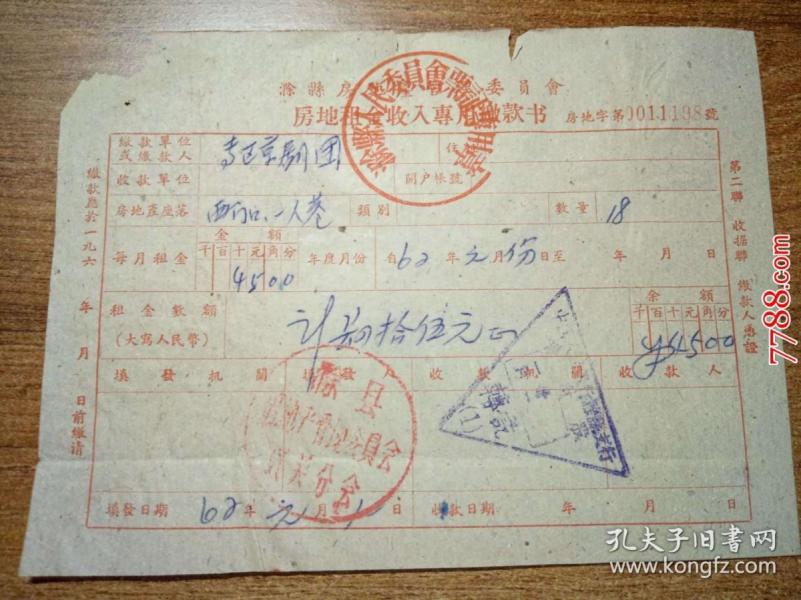 滁縣房產管理委員會
房地租金收入專用繳款书
房地字第0011198號
繳款單位
或繳款人
京剧团
住
收款單位
開户帳號
房地產座落
一人巷
類別
數量
18
每月租金
金額
千百十元角分
4500
年度月份
自62年元月份日至 年 月 日
租金數額
(大寫人民幣)
计肆拾伍元正
金額
千百十元角分
¥4500
填發機關
填發人
收款機關
收款人
填發日期
62年元月 日
收款日期 年 月 日
繳款應於一九六 年 月 日前繳清
第二聯 收据聯 繳款人憑證
委員會票証專用章
滁县
管理委員会
分会
支行
轉訖
(1)
7788.com
孔夫子旧书网
www.kongfz.com